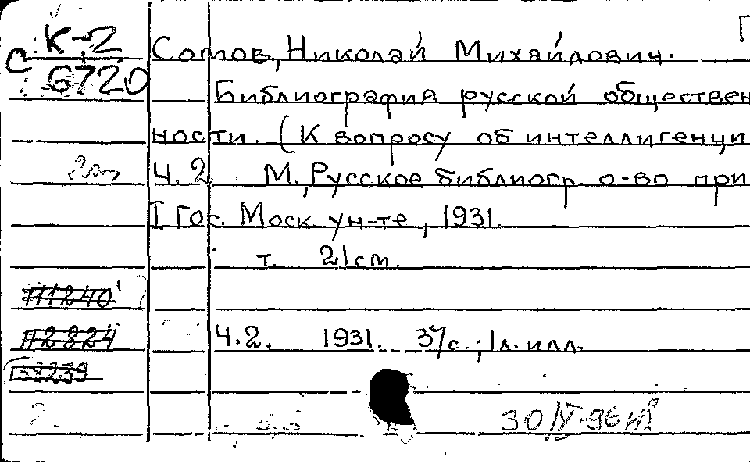 К-2
С 6720
Сомов, Николай Михайлович.
Библиография русской обществен
ности. (К вопросу об интеллигенци
2 экз
Ч.2 М., Русское библиогр. о-во при
I Гос. Моск. ун-те, 1931.
т. 21см.
Ч.2. 1931. 37с.; 1л.илл.
30/IV-96